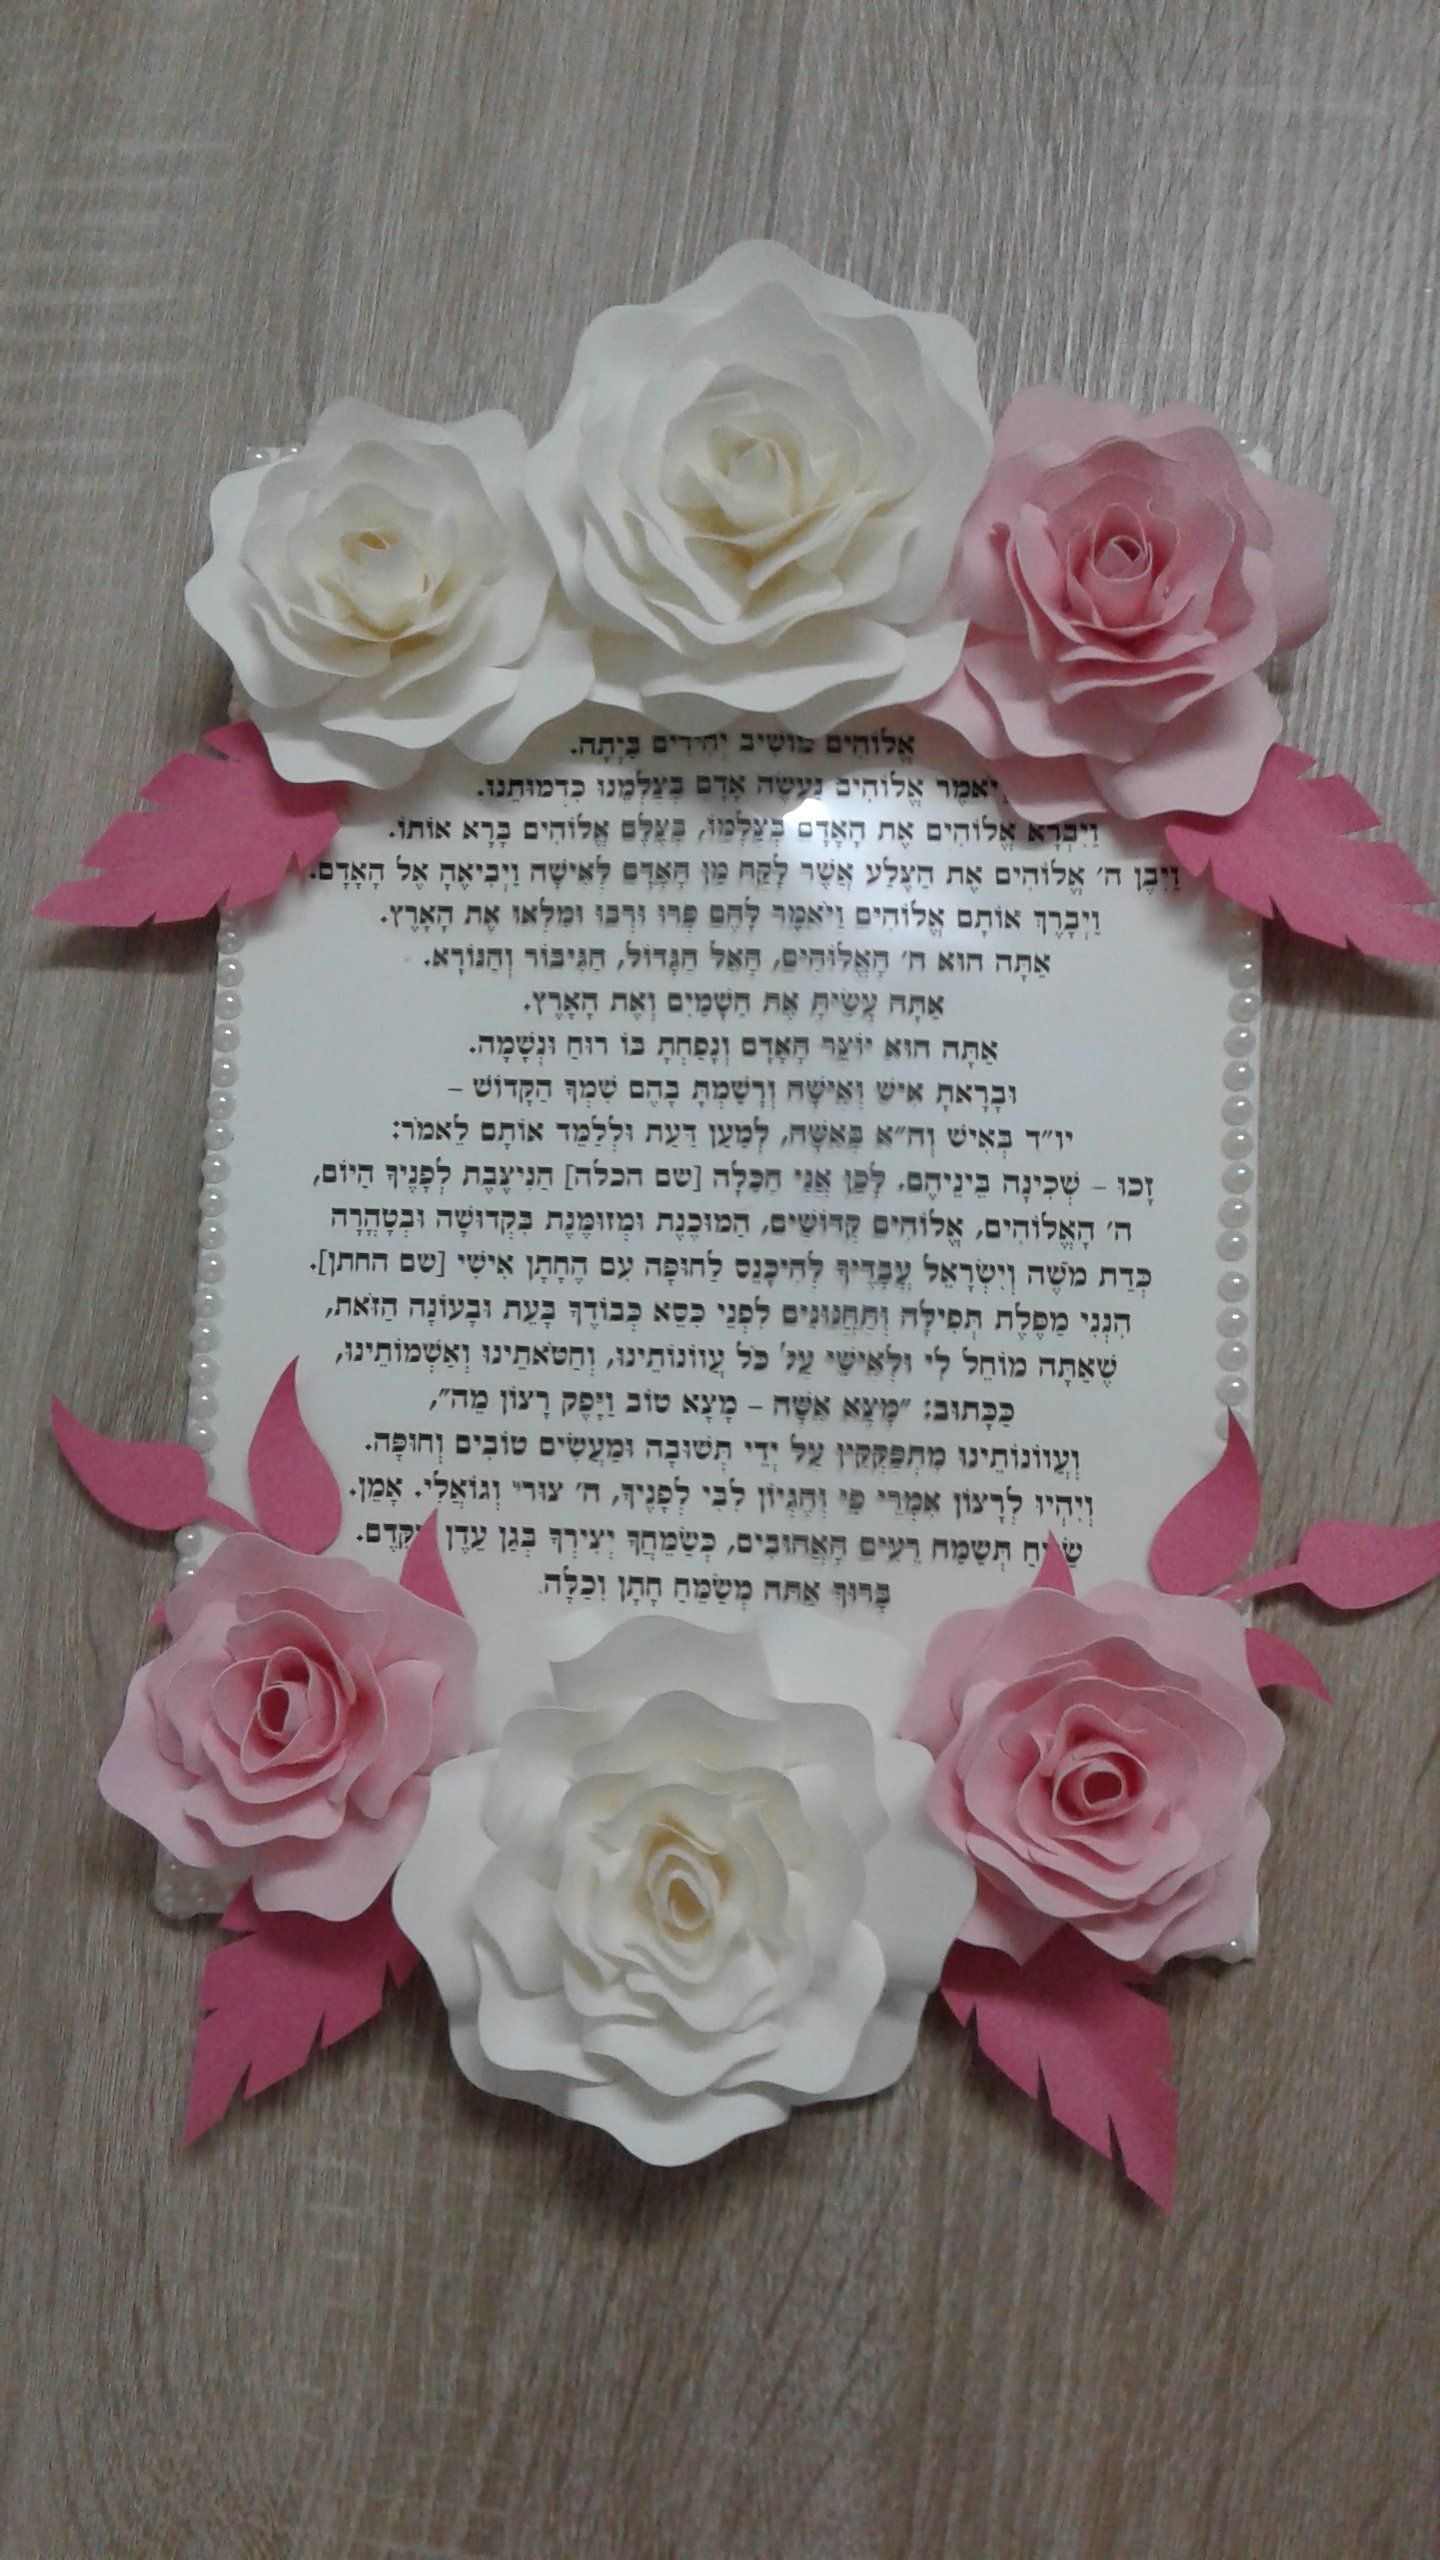 אֱלוֹהִים מוֹשִׁיב יְחִידִים בַּיְתָה.
וַיֹּאמֶר אֱלוֹהִים נַעֲשֶׂה אָדָם בְּצַלְמֵנוּ כִּדְמוּתֵנוּ.
וַיִּבְרָא אֱלוֹהִים אֶת הָאָדָם בְּצַלְמוֹ, בְּצֶלֶם אֱלוֹהִים בָּרָא אוֹתוֹ.
וַיִּבֶן ה׳ אֱלוֹהִים אֶת הַצֶּלַע אֲשֶׁר לָקַח מִן הָאָדָם לְאִישָּׁה וַיְבִיאֶהָ אֶל הָאָדָם.
וַיְבָרֶךְ אוֹתָם אֱלוֹהִים וַיֹּאמֶר לָהֶם פְּרוּ וּרְבוּ וּמִלְאוּ אֶת הָאָרֶץ.
אַתָּה הוּא ה׳ הָאֱלוֹהִים, הָאֵל הַגָּדוֹל, הַגִּיבּוֹר וְהַנּוֹרָא.
אַתָּה עָשִׂיתָ אֶת הַשָּׁמַיִם וְאֶת הָאָרֶץ.
אַתָּה הוּא יוֹצֵר הָאָדָם וְנָפַחְתָּ בּוֹ רוּחַ וּנְשָׁמָה.
וּבָרָאתָ אִישׁ וְאִישָּׁה וְרָשַׁמְתָּ בָּהֶם שִׁמְךָ הַקָּדוֹשׁ –
יו״ד בְּאִישׁ וְה״א בְּאִשָּׁה, לְמַעַן דַּעַת וּלְלַמֵּד אוֹתָם לֵאמֹר:
זָכוּ – שְׁכִינָה בֵּינֵיהֶם. לָכֵן אֲנִי הַכַּלָּה [שם הכלה] הַנִּיצֶּבֶת לְפָנֶיךָ הַיּוֹם,
ה׳ הָאֱלוֹהִים, אֱלוֹהִים קְדוֹשִׁים, הַמּוּכֶנֶת וּמְזוּמֶּנֶת בִּקְדוּשָּׁה וּבְטָהֳרָה
כְּדַת מֹשֶׁה וְיִשְׂרָאֵל עֲבָדֶיךָ לְהִיכָּנֵס לַחוּפָּה עִם הֶחָתָן אִישִׁי [שם החתן].
הִנְנִי מַפֶּלֶת תְּפִילָּה וְתַחֲנוּנִים לִפְנֵי כִּסֵּא כְּבוֹדֶךָ בָּעֵת וּבָעוֹנָה הַזֹּאת,
שֶׁאַתָּה מוֹחֵל לִי וּלְאִישִׁי עַל כֹּל עֲווֹנוֹתֵינוּ, וְחַטֹּאתֵינוּ וְאַשְׁמוֹתֵינוּ,
כַּכָּתוּב: ״מָצָא אִשָּׁה – מָצָא טוֹב וַיָּפֶק רָצוֹן מֵה״,
וְעֲווֹנוֹתֵינוּ מִתְפַּקְּקִין עַל יְדֵי תְּשׁוּבָה וּמַעֲשִׂים טוֹבִים וְחוּפָּה.
וְיִהְיוּ לְרָצוֹן אִמְרֵי פִי וְהֶגְיוֹן לִבִּי לְפָנֶיךָ, ה׳ צוּרִי וְגוֹאֲלִי. אָמֵן.
שַׂמֵּחַ תְּשַׂמַּח רֵעִים הָאֲהוּבִים, כְּשַׂמֵּחֲךָ יְצִירְךָ בְּגַן עֵדֶן מִקֶּדֶם.
בָּרוּךְ אַתָּה מְשַׂמֵּחַ חָתָן וְכַלָּה.